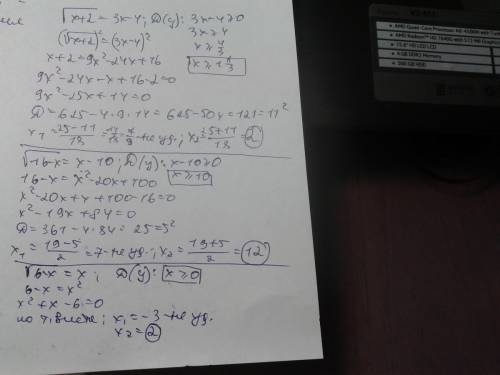 √x+2 = 3x-4; D(y): 3x-4≥0
(√x+2)² = (3x-4)² 3x≥4
x≥4/3
x+2=9x²-24x+16
x≥1 1/3
9x²-24x-x+16-2=0
9x²-25x+14=0
D=625-4·9·14=625-504=121=11²
x₁=25-11/18=14/18=7/9-не уд.; x₂=25+11/18=2
√16-x=x-10; D(y): x-10≥0
16-x=x²-20x+100 x≥10
x²-20x+x+100-16=0
x²-19x+84=0
D=361-4·84=25=5²
x₁=19-5/2=7-не уд.; x₂=19+5/2=12
√6-x=x; D(y): x≥0
6-x=x²
x²+x-6=0
по т. Виета; x₁=-3-не уд.
x₂=2
AMD Quad-Core Processor
AMD Radeon HD
4 GB DDR3 Memory
500 GB HDD